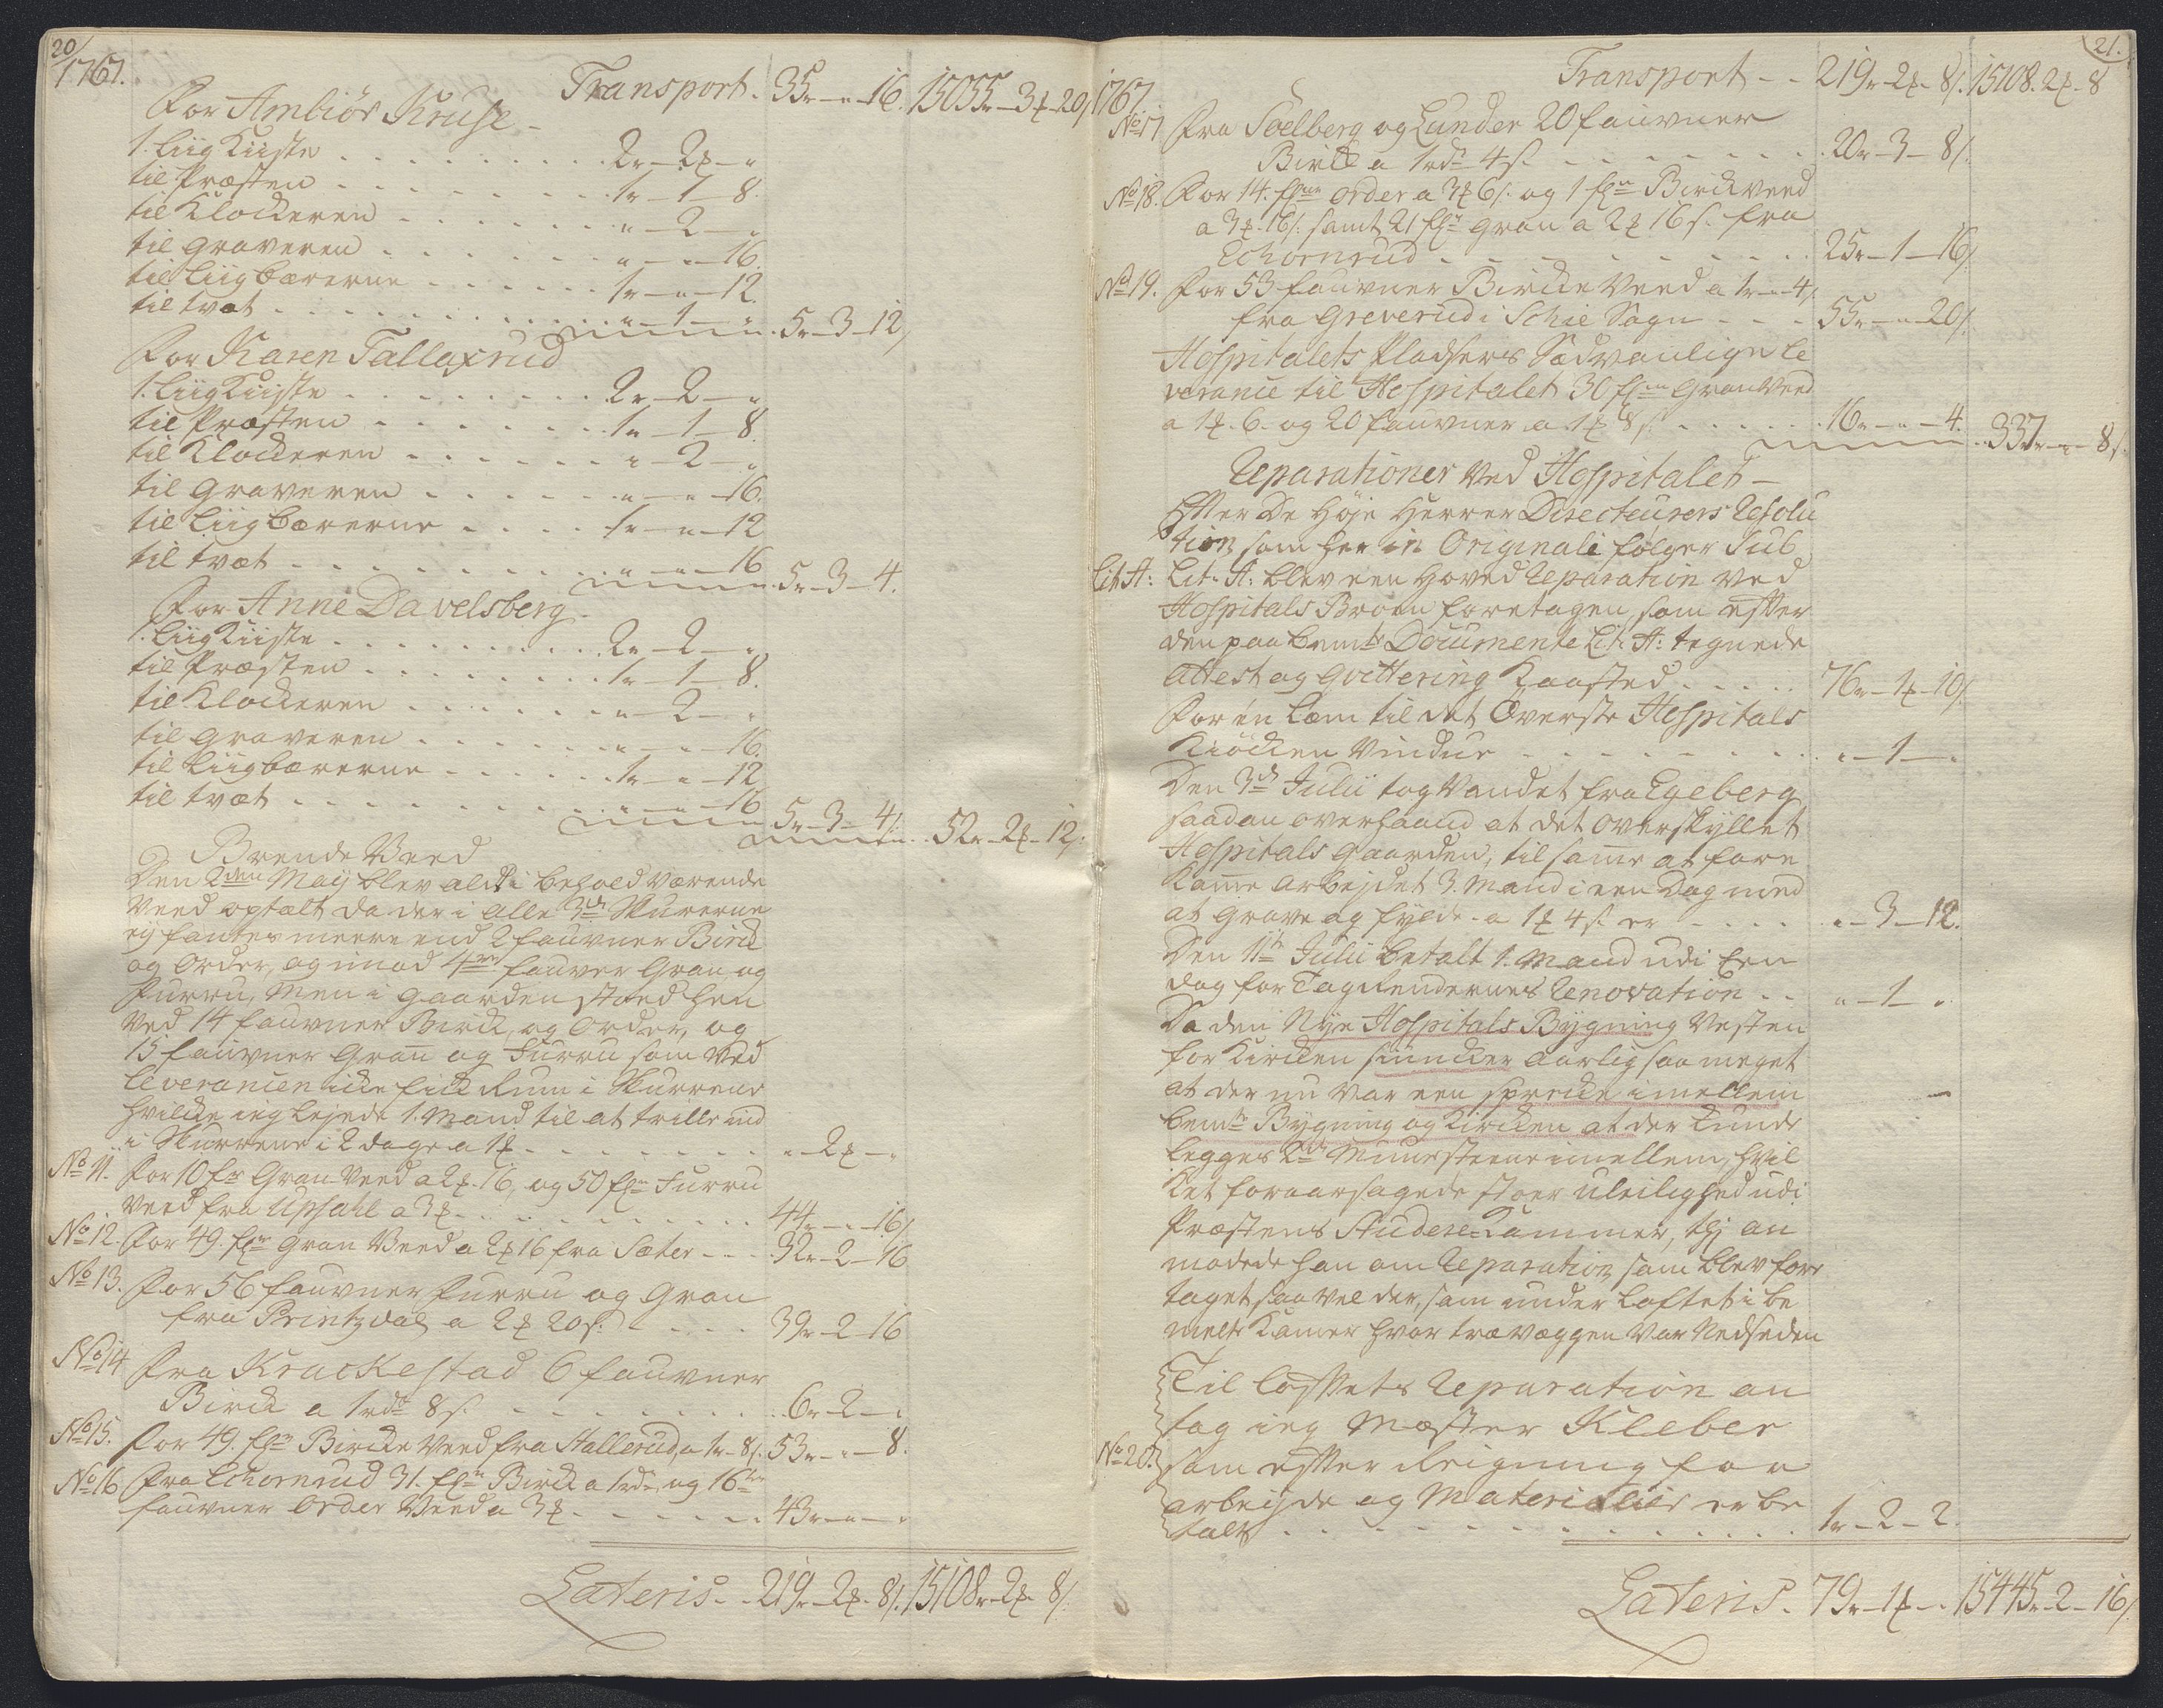 20/
1767.
Transport. 35r - " - 16. 15055r - 3 - 20/
For Ambiør Kruse -
1. Liig Kiiste . . . 2r - 2 - "
til Præsten . . . 1r - 1 - 8.
til Klockeren . . . " - 2 - "
til Graveren . . . " - " - 16.
til Liigbærerne . . . 1r - " - 12.
til tvæt . . . " - 1 - " . 5r - 3 - 12/
For Karen Tallaxrud
1. Liig Kiiste . . . 2r - 2 - "
til Præsten . . . 1r - 1 - 8.
til Klockeren . . . " - 2 - "
til Graveren . . . " - " - 16.
til Liigbærerne . . . 1r - " - 12
til tvæt . . . " - " - 16 . 5r - 3 - 4.
For Anne Davelsberg -
1. Liig Kiiste . . . 2r - 2 - "
til Præsten . . . 1r - 1 - 8.
til Klockeren . . . " - 2 - "
til Graveren . . . " - " - 16.
til Liigbærerne . . . 1r - " - 12
til tvæt . . . " - " - 16 5r - 3 - 4/. 52r - 2 - 12/.
Brende Veed
Den 2den Maij blev aldt i behold værende
Veed optalt da der i alle 3de Skurerne
ej fantes meere end 2 fauvner Birck
og Order, og imod fauver Gran og
Furru, Men i Gaarden stoed hen
ved 14 fauvner Birck, og Order, og
15 fauvner Gran og Furru som ved
Leverancen icke fick Rum i Skurrene
hvilcke ieg lejede 1. Mand til at trille ind
i Skurrene i 2 dage a 1 . . . " - 2 - "
No 11. For 10 fn Gran-Veed a 2. 16, og 50 fn Furru
Veed fra Upsahl a 3 . . . 44r - " - 16/
No 12. For 49. fn Gran Veed a 2 16 fra Sæter . . . 32r - 2 - 16
No 13. For 56 fauvner Furru og Gran
fra Printzdal a 2 20s. . . . 39r - 2 - 16
No 14 Fra Krackestad 6 fauvner
Birck a 1rd 8s. . . . 6r - 2 - "
No 15. For 49. fn Bircke Veed fra Hallerud, a 1r - 8/. 53r - " - 8.
No 16 Fra Echornrud 31. fn Birck a 1rd, og 16
fauvner Order Veed a 3 . . . 43r - " - "
Lateris . . 219r - 2 - 8/. 15108r - 2 - 8/.
21.
1767.
Transport - - 219r - 2 - 8/. 15108. 2 - 8
No 17 Fra Soelberg og Lunder 20 fauvner
Birck a 1rd 4s. . . . 20r - 3 - 8/.
No 18. For 14. fn Order a 3 6/. og 1 fn Birckveed
a 3. 16/. samt 21 fn Gran a 2 16s. fra
Echornrud . . . 25r - 1 - 16/
No 19. For 53 fauvner Bircke Veed a 1r - 4/
fra Greverud i Schie Sogn - - - 55r - " - 20/.
Hospitalets Pladsers Sædvanlige le
verance til Hospitalet 30 fn Gran Veed
a 1. 6. og 20 fauvner a 1 8s. . . . 16r - " - 4. 337r - " - 8/.
Reparationer ved Hospitalet -
Efter De Høje Herrer Directeurers Resolu
tion som her in Originali følger Sub
Lit. A: Lit. A: blev een Hoved Reparation ved
Hospitals Broen foretagen, som efter
den paa bemte Documente Lit. A: tegnede
Attest og Qvittering Kaasted . . . 76r - 1 - 10/.
For én Læm til det Øverste Hospitals
Kiøcken Vindue . . . " - 1 - "
Den 3de Julii tog Vandet fra Egeberg
saadan overhaand at det overskyllet
Hospitals Gaarden, til same at fore
kome arbejdet 3. Mand i een Dag med
at Grave og fylde - a 1 4s. er . . . " - 3 - 12.
Den 11te Julii betalt 1. Mand udi Een
dag for Tag Rendernes Renovation . . " - 1 - "
Da den Nye Hospitals Bygning Vesten
for Kircken siuncker aarlig saa meget
at der nu var een sprecke imellem
bemte Bygning og Kircken at der kunde
legges 2de Muursteene imellem, hvil
ket foraarsagede stoer uleilighed udi
Præstens Studere-Kammer, thj an
modede han om Reparation, som blev fore
taget saavel der, som under Loftet i be
melte Kamer hvor træveggen var Nedseden
Til Loftets Reparation an
tog ieg Mæster Kleber
No 20. som efter Reigning for
arbejde og Materialier er be
talt . . . 1r - 2 - 2.
Lateris . 79r - 1 - " . 15445r - 2 - 16/.